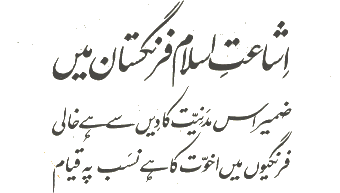 اِشاعتِ اسلام فرنگستان میں
ضمیر اس مدَنِیّت کا دِیں سے ہے خالی
فرنگیوں میں اخوّت کا ہے نسَب پہ قیام